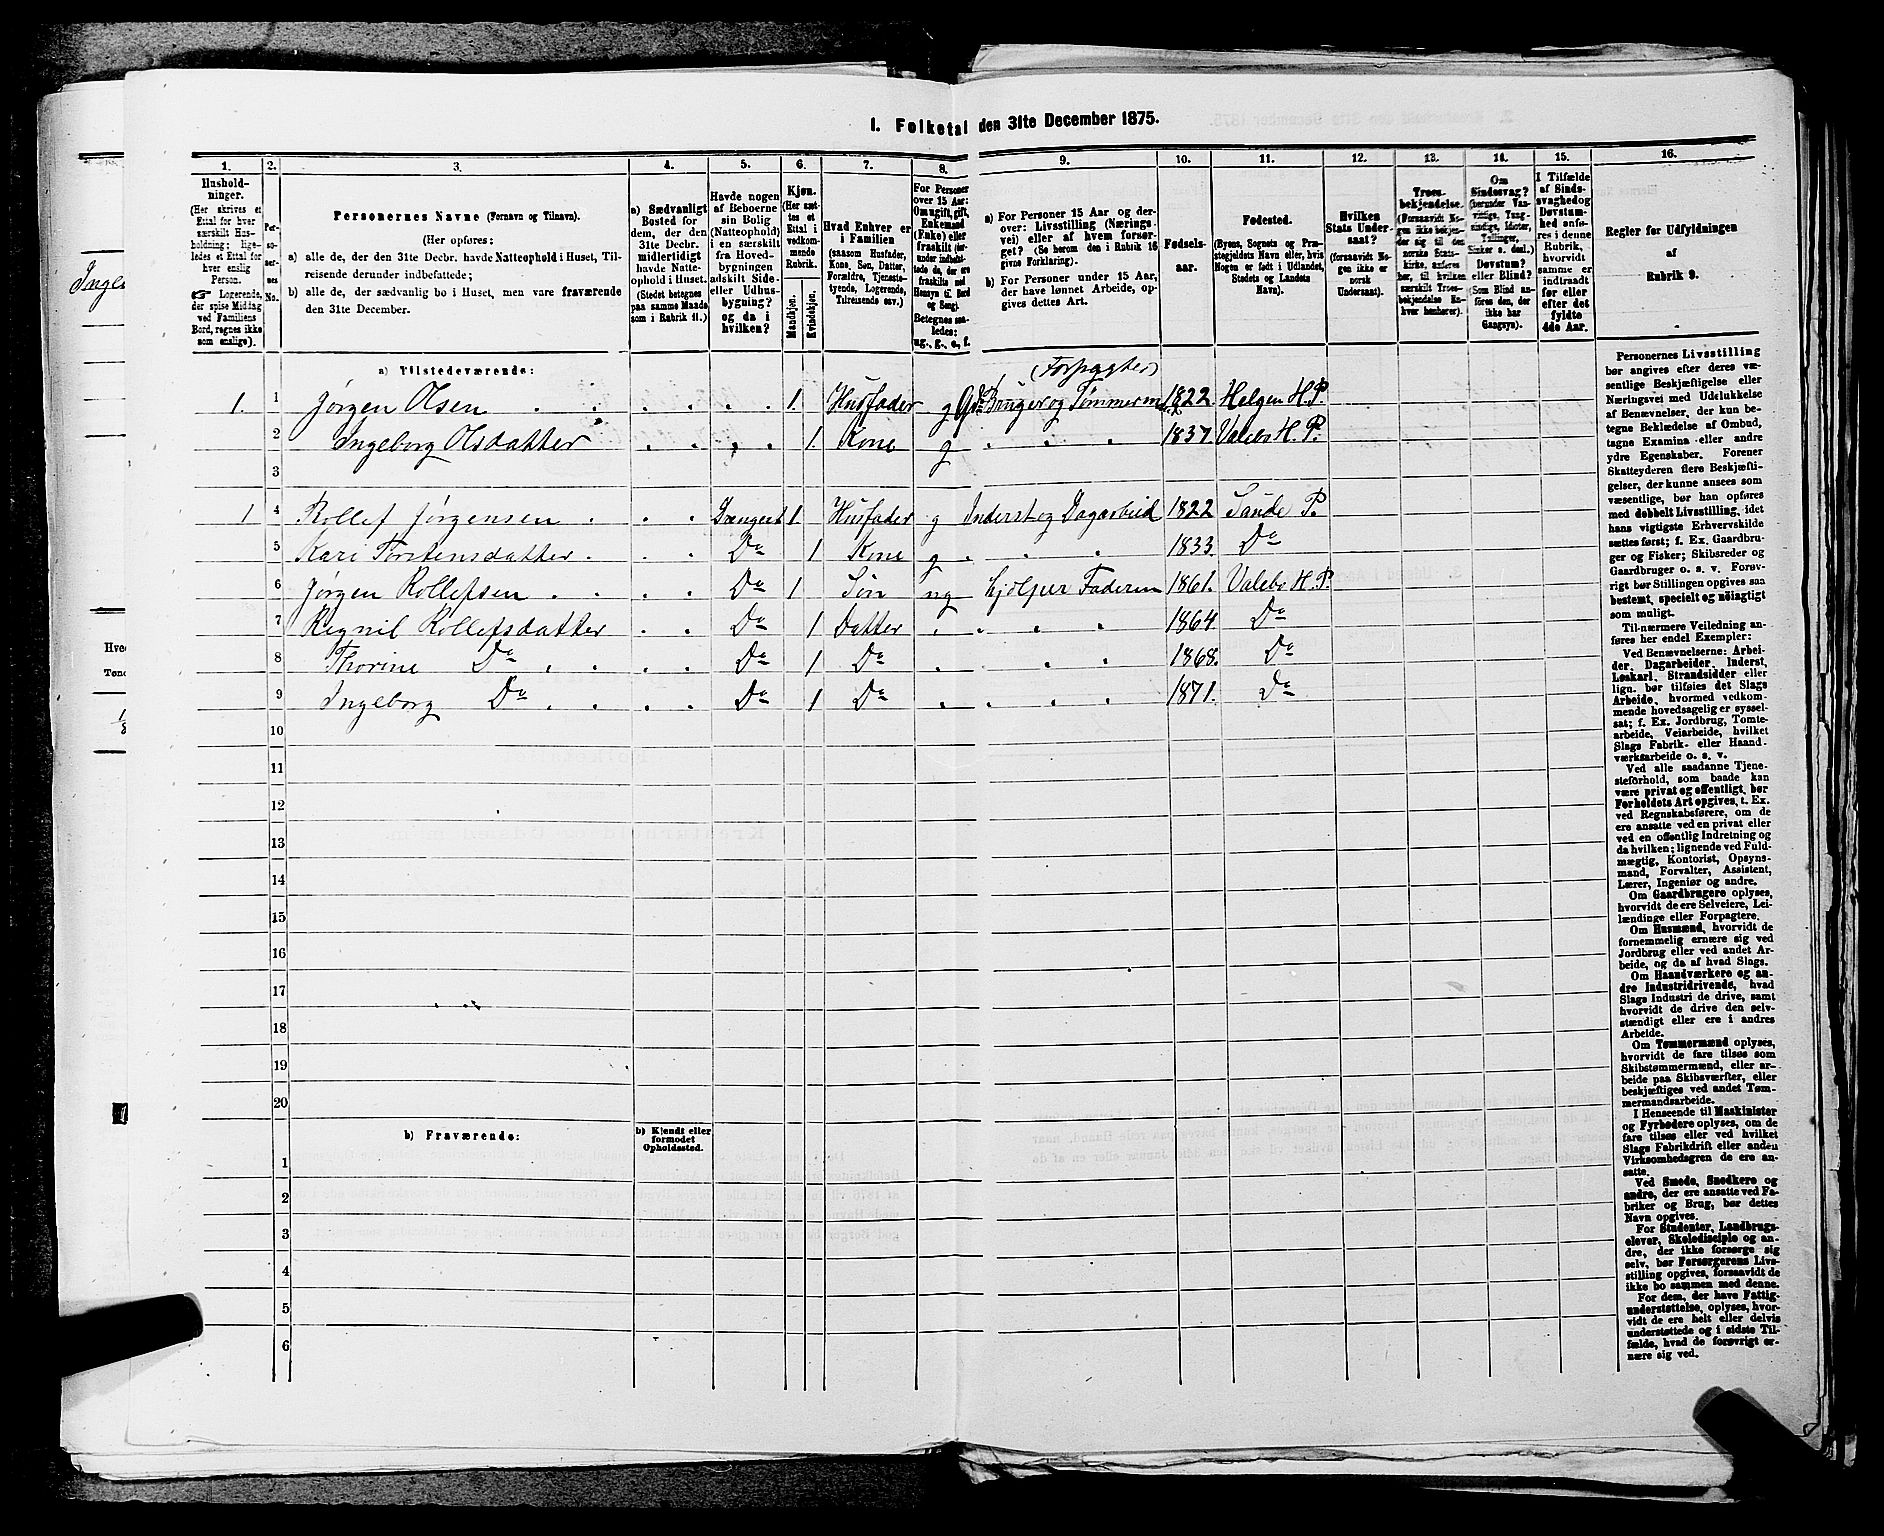 I. Folketal den 31te December 1875.
1.
Hushold-
ninger.
(Her skrives et
Ettal for hver
særskilt Hus-
holdning; lige-
ledes et Ettal for
hver enslig
Person.
Logerende,
der spise Middag
ved Familiens
Bord, regnes ikke
som enslige).
2.
Per-
so-
ner-
nes
No.
3.
Personernes Navne (Fornavn og Tilnavn).
(Her opføres:
a) alle de, der den 31te Decbr. havde Natteophold i Huset, Til-
reisende derunder indbefattede;
b) alle de, der sædvanlig bo i Huset, men vare fraværende
den 31te December.
4.
a) Sædvanligt
Bosted for
dem, der den
31te Decbr.
midlertidigt
havde Natte-
ophold i Huset.
(Stedet betegnes
paa samme Maade
som i Rubrik 11.)
5.
Havde nogen
af Beboerne
sin Bolig
(Natteophold)
i en særskilt
fra Hoved-
bygningen
adskilt Side-
eller Udhus-
bygning?
og da i
hvilken?
6.
Kjøn.
(Her sæt-
tes et
Ettal i
vedkom-
mende
Rubrik.
Mandkjøn.
Kvindekjøn.
7.
Hvad Enhver er
i Familien
(saasom Husfader,
Kone, Søn, Datter,
Forældre, Tjeneste-
tyende, Logerende,
Tilreisende osv.)
8.
For Personer
over 15 Aar:
Om ugift, gift,
Enkemand
(Enke) eller
fraskilt (her-
under indbefat-
tede de, der ere
fraskilte med
Hensyn til Bord
og Seng).
Betegnes saa-
ledes:
ug., g., e., f.
9.
a) For Personer 15 Aar og der-
over: Livsstilling (Nærings-
vei) eller af hvem forsør-
get? (Se herom den i Rubrik 16
givne Forklaring).
b) For Personer under 15 Aar,
der have lønnet Arbeide, op-
gives dettes Art.
10.
Fødsels-
aar.
11.
Fødested.
(Byens, Sognets og Præ-
stegjeldets Navn eller, hvis
Nogen er født i Udlandet,
Stedets og Landets
Navn).
12.
Hvilken
Stats Under-
saat?
(forsaavidt No-
gen ikke er
norsk
Undersaat).
13.
Troes-
bekjendelse.
(Forsaavidt No-
gen ikke bekjen-
der sig til den
norske Stats-
kirke, anføres
her, til hvilken
særskilt Troes-
bekjendelse En-
hver henhører).
14.
Om
Sindssvag?
(herunder Van-
vittige, Tung-
sindige, Idioter,
Tullinger,
Sinker o. desl.)
Døvstum?
eller Blind?
(Som Blind an-
føres den, der
ikke har
Gangsyn).
15.
I Tilfælde
af Sinds-
svaghed og
Døvstum-
hed anfø-
res i denne
Rubrik,
hvorvidt
samme er
indtraadt
før eller
efter det
fyldte
4de Aar.
16.
Regler for Udfyldningen
af
Rubrik 9.
a) Tilstedeværende:
(Forpagter)
1. 1 Jørgen Olsen 1. Husfader g Gdr. Bruger og Tømmerm 1822 Helgen H. P.
2 Ingeborg Olsdatter 1. Kone g 1837 Valebo H. P.
3
1 4 Rollef Jørgensen Drengest 1. Husfader g Inderst og Dagarbeid 1822 Saude P.
5 Kari Torstensdatter Do 1 Kone g 1833. Do
6 Jørgen Rollefsen Do 1 Søn ug hjelper Faderen 1861. Valebo H. P.
7 Regnil Rollefsdatter Do 1 Datter 1864 Do
8 Thorine Do Do 1 Do 1868. Do
9 Ingeborg Do Do 1 Do 1871. Do
10
11
12
13
14
15
16
17
18
19
20
b) Fraværende:
b) Kjendt eller
formodet
Opholdssted.
1
2
3
4
5
6
Personernes Livsstilling
bør angives efter deres væ-
sentlige Beskjæftigelse eller
Næringsvei med Udelukkelse
af Benævnelser, der kun be-
tegne Beklædelse af Ombud,
tagne Examina eller andre
ydre Egenskaber. Forener
Skatteyderen flere Beskjæfti-
gelser, der kunne ansees som
væsentlige, bør han opføres
med dobbelt Livsstilling, idet
hans vigtigste Erhvervskilde
sættes først; f. Ex. Gaardbru-
ger og Fisker; Skibsreder og
Gaardbruger o. s. v. Forøv-
rigt bør Stillingen opgives saa
bestemt, specielt og nøiagtigt
som muligt.
Til nærmere Veiledning an-
føres her endel Exempler:
Ved Benævnelserne: Arbei-
der, Dagarbeider, Inderst,
Løskarl, Strandsidder eller
lign. bør tilføies det Slags
Arbeide, hvormed vedkom-
mende hovedsagelig er syssel-
sat; f. Ex. Jordbrug, Tomte-
arbeide, Veiarbeide, hvilket
Slags Fabrik- eller Haand-
værksarbeide o. s. v.
Ved alle saadanne Tjene-
steforhold, som baade kan
være privat og offentligt, bør
Forholdets Art opgives, t. Ex.
ved Regnskabsførere, om de
ere ansatte ved en privat eller
ved en offentlig Indretning og
da hvilken; lignende ved Fuld-
mægtig, Kontorist, Opsyns-
mand, Forvalter, Assistent,
Lærer, Ingeniør og andre.
Om Gaardbrugere oplyses,
hvorvidt de ere Selveiere, Lei-
lændinge eller Forpagtere.
Om Husmænd, hvorvidt de
fornemmelig ernære sig ved
Jordbrug eller ved andet Ar-
beide, og da af hvad Slags.
Om Haandværkere og an-
dre Industridrivende, hvad
Slags Industri de drive, samt
hvorvidt de drive den selv-
stændigt eller ere i andres
Arbeide.
Om Tømmermænd oplyses,
hvorvidt de fare tilsøs som
Skibstømmermænd, eller ar-
beide paa Skibsværfter, eller
beskjæftiges ved andet Tøm-
mermandsarbeide.
I Henseende til Maskinister
og Fyrbødere oplyses, om de
fare tilsøs eller ved hvilket
Slags Fabrikdrift eller anden
Virksomhedsgren de ere an-
satte.
Ved Smede, Snedkere og
andre, der ere ansatte ved Fa-
briker og Brug, bør dettes
Navn opgives.
For Studenter, Landbrugs-
elever, Skoledisciple og an-
dre, der ikke forsørge sig
selv, bør Forsørgerens Livs-
stilling opgives, forsaavidt de
ikke bo sammen med denne.
For dem, der have Fattig-
understøttelse, oplyses, hvor-
vidt de ere helt eller delvis
understøttede og i sidste Til-
fælde, hvad de forøvrigt er-
nære sig ved.